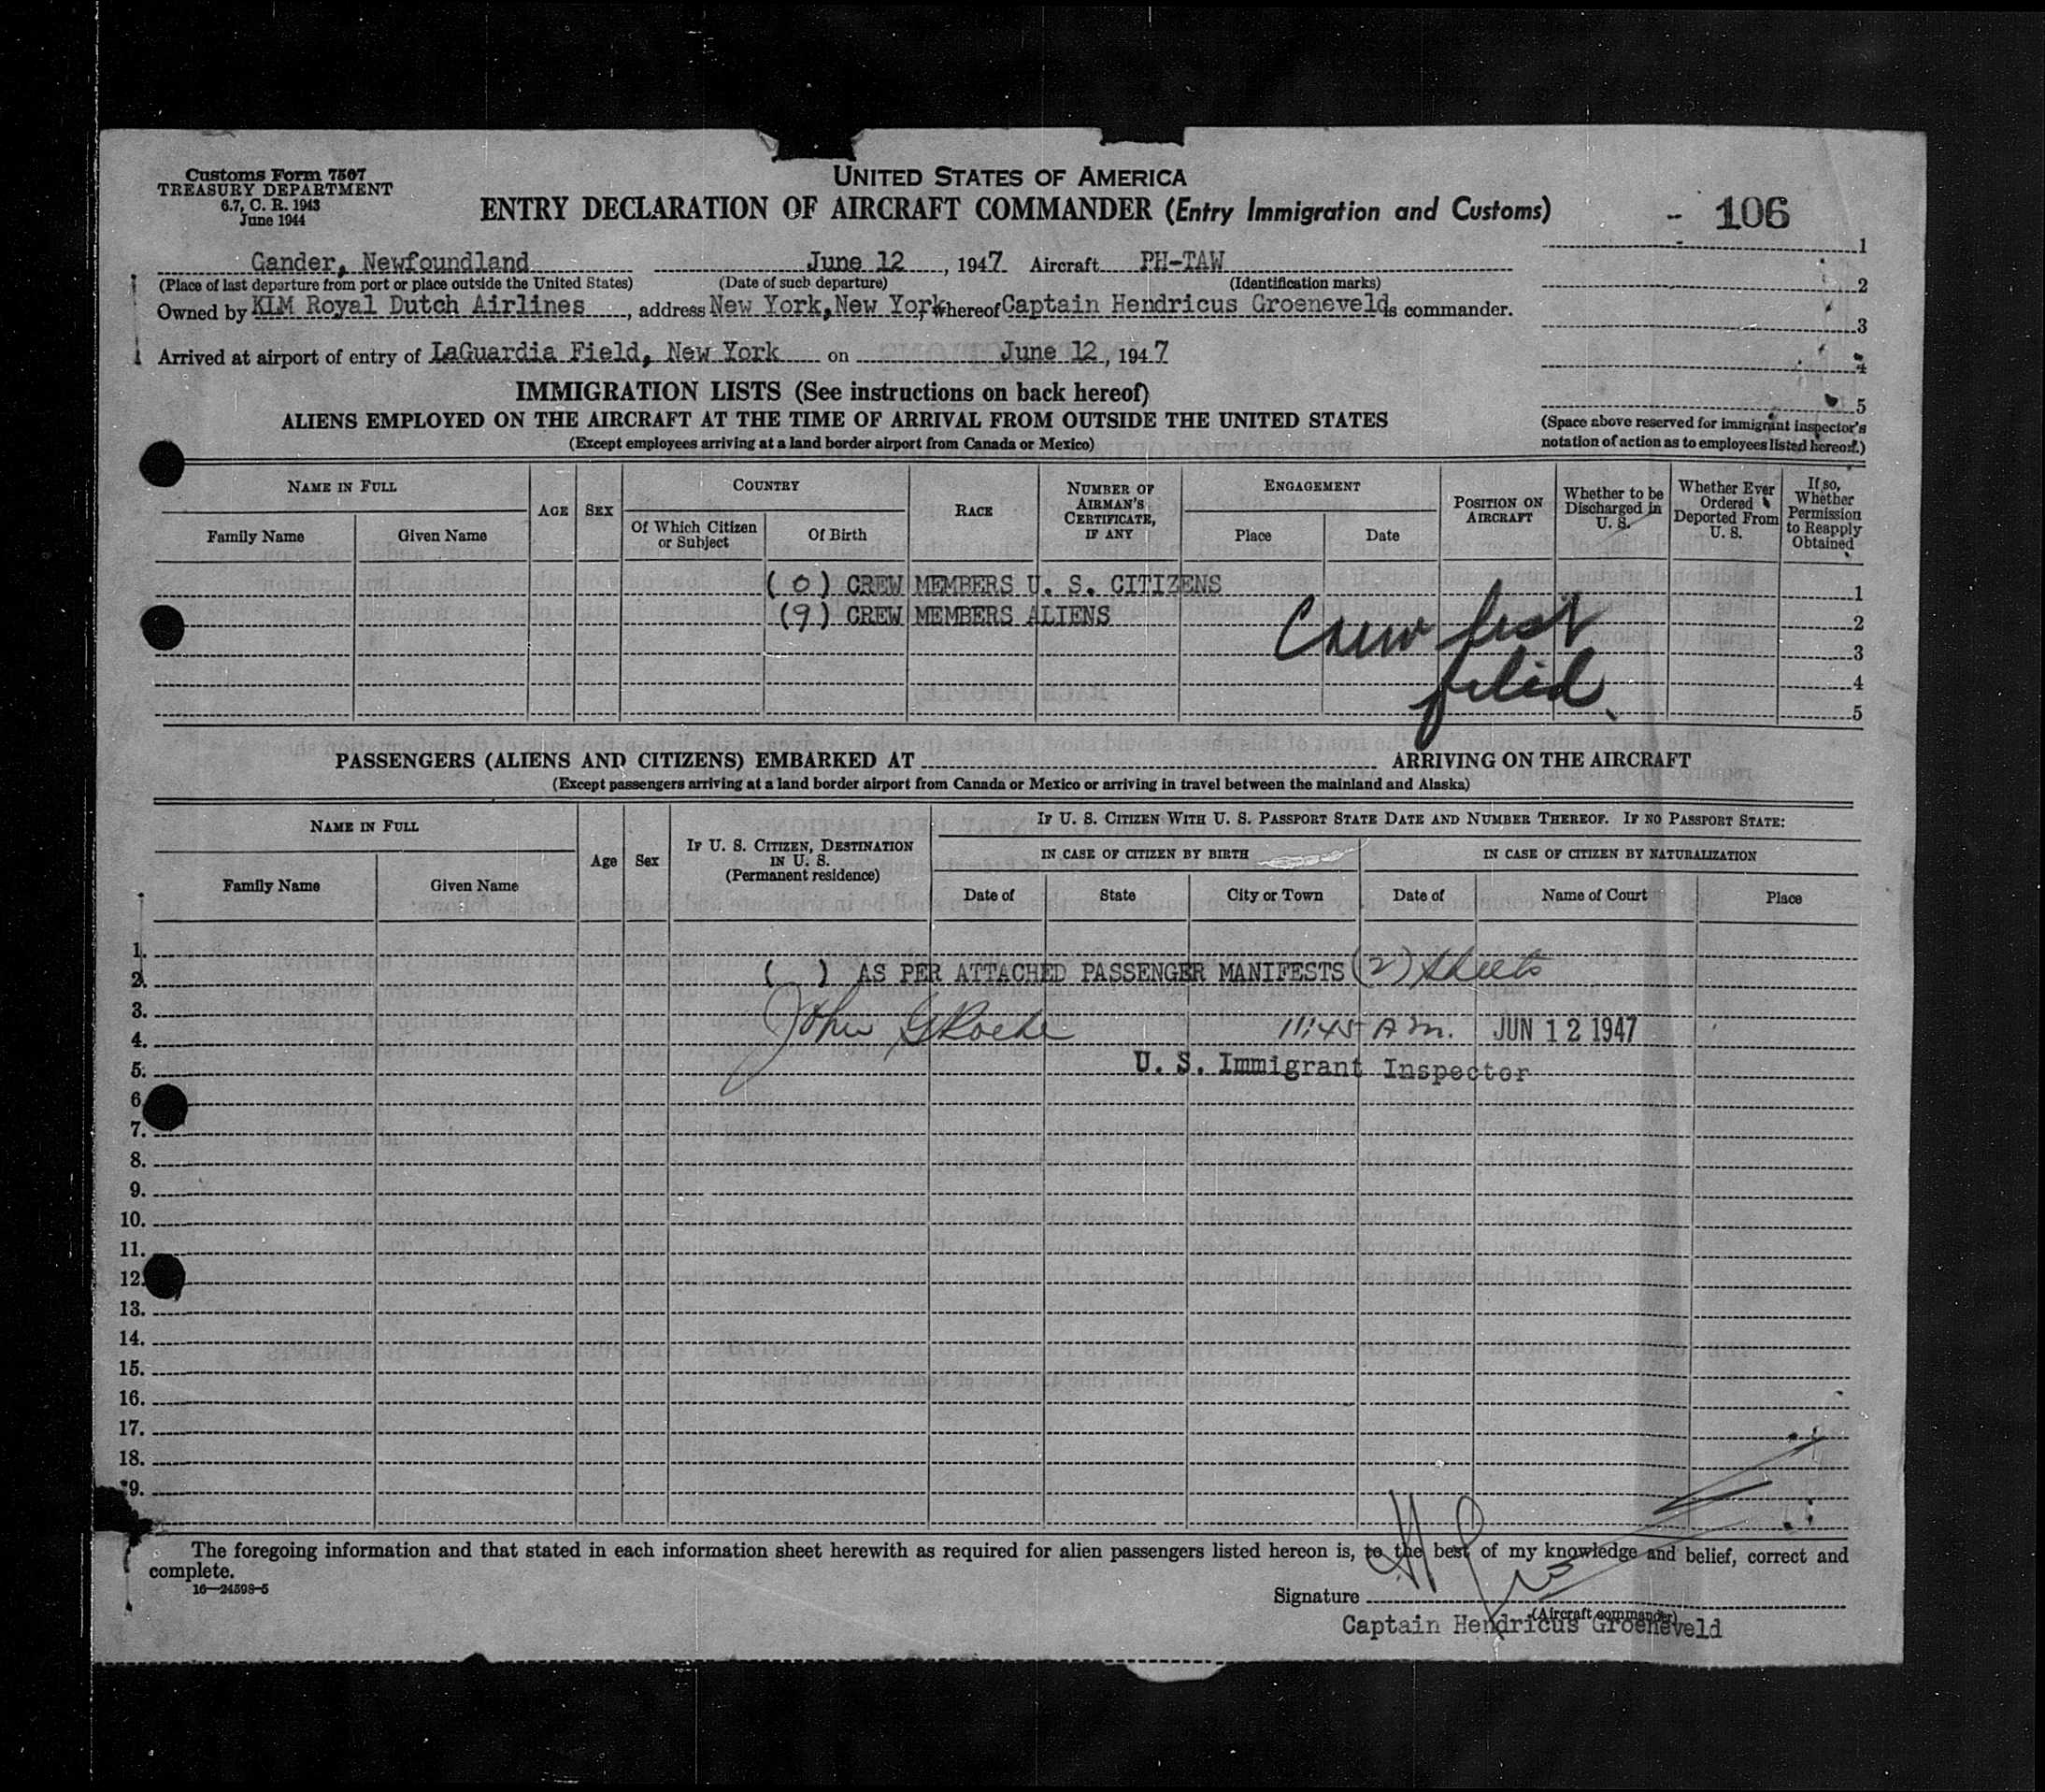 Customs Form 7507
TREASURY DEPARTMENT
6.7, C. R. 1943
June 1944
UNITED STATES OF AMERICA
ENTRY DECLARATION OF AIRCRAFT COMMANDER (Entry Immigration and Customs)
- 106
Gander, Newfoundland June 12, 1947 Aircraft PH-TAW
(Place of last departure from port or place outside the United States) (Date of such departure) (Identification marks)
Owned by KLM Royal Dutch Airlines, address New York, New York, whereof Captain Hendricus Groeneveld is commander.
Arrived at airport of entry of LaGuardia Field, New York on June 12, 1947
1
2
3
4
5
(Space above reserved for immigrant inspector's
notation of action as to employees listed hereon.)
IMMIGRATION LISTS (See instructions on back hereof)
ALIENS EMPLOYED ON THE AIRCRAFT AT THE TIME OF ARRIVAL FROM OUTSIDE THE UNITED STATES
(Except employees arriving at a land border airport from Canada or Mexico)
NAME IN FULL
Family Name Given Name
AGE
SEX
COUNTRY
Of Which Citizen or Subject Of Birth
RACE
NUMBER OF AIRMAN'S CERTIFICATE, IF ANY
ENGAGEMENT
Place Date
POSITION ON AIRCRAFT
Whether to be Discharged in U. S.
Whether Ever Ordered Deported From U. S.
If so, Whether Permission to Reapply Obtained
(0) CREW MEMBERS U. S. CITIZENS 1
(9) CREW MEMBERS ALIENS 2
Crew list
filed.
3
4
5
PASSENGERS (ALIENS AND CITIZENS) EMBARKED AT ARRIVING ON THE AIRCRAFT
(Except passengers arriving at a land border airport from Canada or Mexico or arriving in travel between the mainland and Alaska)
NAME IN FULL
Family Name Given Name
Age
Sex
IF U. S. CITIZEN, DESTINATION
IN U. S.
(Permanent residence)
IF U. S. CITIZEN WITH U. S. PASSPORT STATE DATE AND NUMBER THEREOF. IF NO PASSPORT STATE:
IN CASE OF CITIZEN BY BIRTH IN CASE OF CITIZEN BY NATURALIZATION
Date of State City or Town Date of Name of Court Place
1.
2. ( ) AS PER ATTACHED PASSENGER MANIFESTS (2) Sheets
3.
4. John G Roche 11:45 A M. JUN 12 1947
5. U. S. Immigrant Inspector
6.
7.
8.
9.
10.
11.
12.
13.
14.
15.
16.
17.
18.
9.
The foregoing information and that stated in each information sheet herewith as required for alien passengers listed hereon is, to the best of my knowledge and belief, correct and
complete.
16—24598-5
Signature
(Aircraft commander)
Captain Hendricus Groeneveld